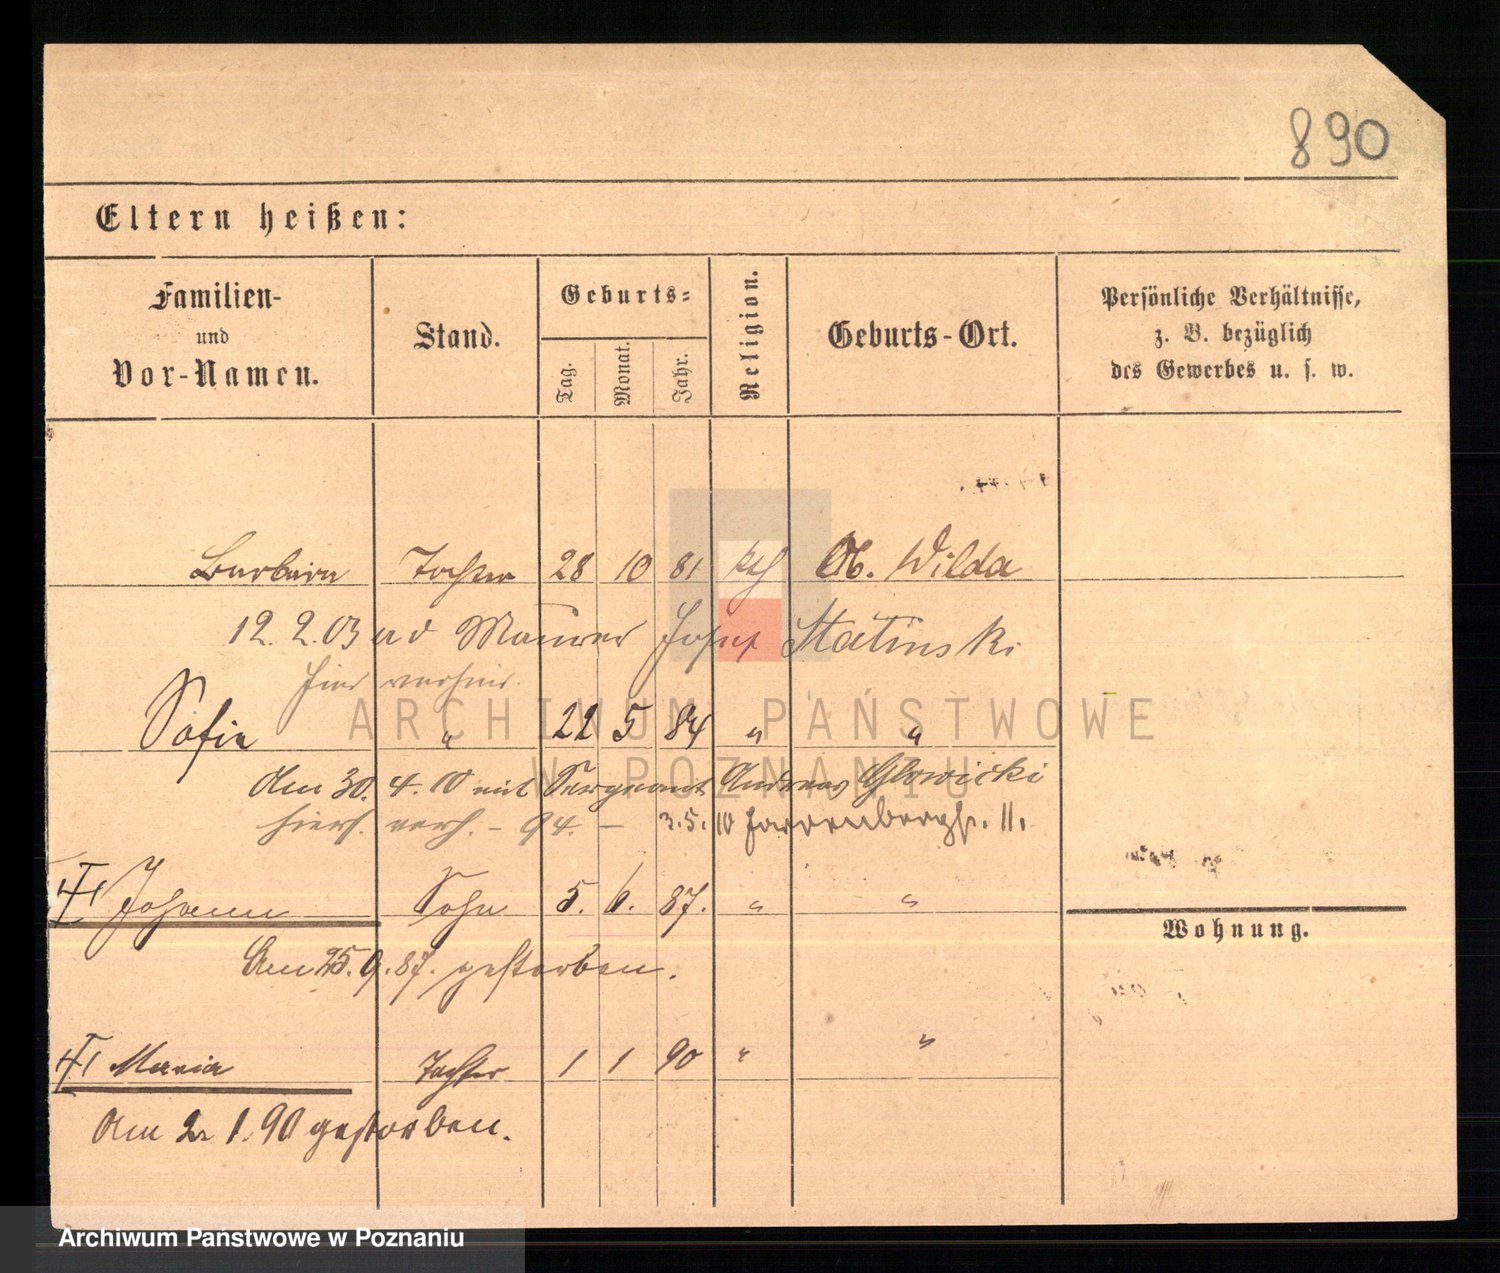 890
Eltern heißen:
Familien-
und
Vor-Namen.
Stand.
Geburts=
Tag.
Monat.
Jahr.
Religion.
Geburts-Ort.
Persönliche Verhältnisse,
z. B. bezüglich
des Gewerbes u. s. w.
Barbara Tochter 28 10 81 kth Ob. Wilda
12. 2. 03 a d Maurer Josef Statinski
hier verheir.
Sofia " 22 5 84 " "
Am 30. 4. 10 mit Sergeant Andreas Glowicki
hiers. verh. - 94. - 3.5.10 11.
Johann Sohn 5. 6. 87. " "
Wohnung.
Am 25. 9. 87. gestorben.
Maria Tochter 1 1 90 " "
Am 2. 1. 90 gestorben.
ARCHIWUM PAŃSTWOWE
W POZNANIU
Archiwum Państwowe w Poznaniu